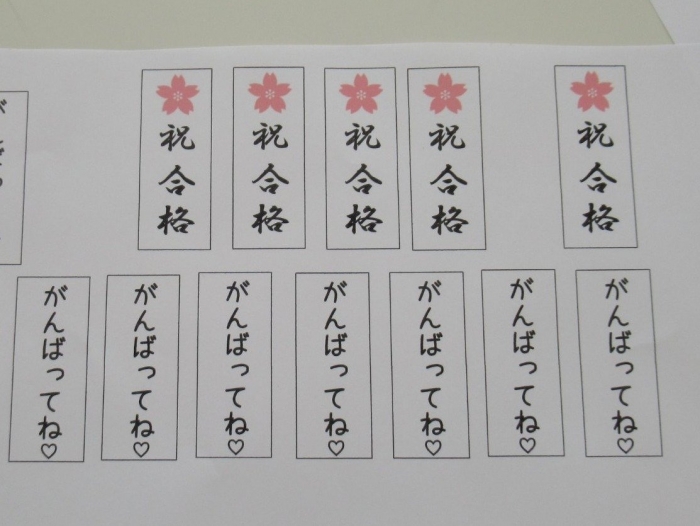 祝合格
祝合格
祝合格
祝合格
祝合格
がんばってね♡
がんばってね♡
がんばってね♡
がんばってね♡
がんばってね♡
がんばってね♡
がんばってね♡